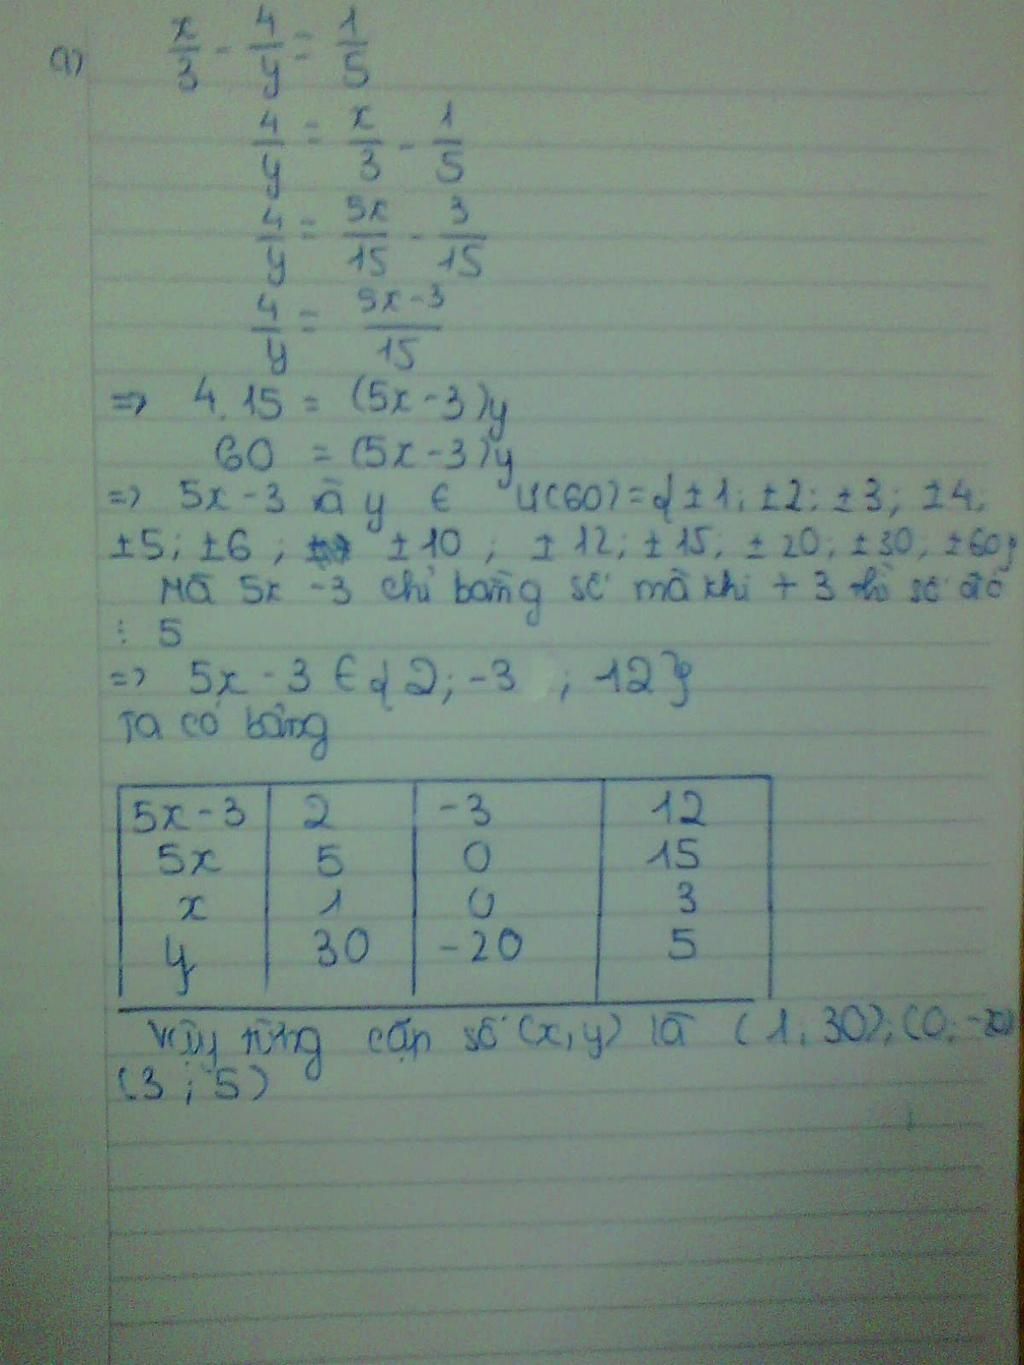 a) x/3 - 4/y = 1/5
4/y = x/3 - 1/5
4/y = 5x/15 - 3/15
4/y = 5x-3/15
=> 4.15 = (5x-3)y
60 = (5x-3)y
=> 5x-3 và y ∈ Ư(60)={±1; ±2; ±3; ±4;
±5; ±6; ±10; ±12; ±15; ±20; ±30; ±60}
Mà 5x-3 chỉ bằng số mà khi + 3 thì số đó
⋮ 5
=> 5x-3 ∈ {2; -3 ; 12}
Ta có bảng
5x-3 2 -3 12
5x 5 0 15
x 1 0 3
y 30 -20 5
Vậy từng cặp số (x,y) là (1; 30); (0; -20)
(3; 5)